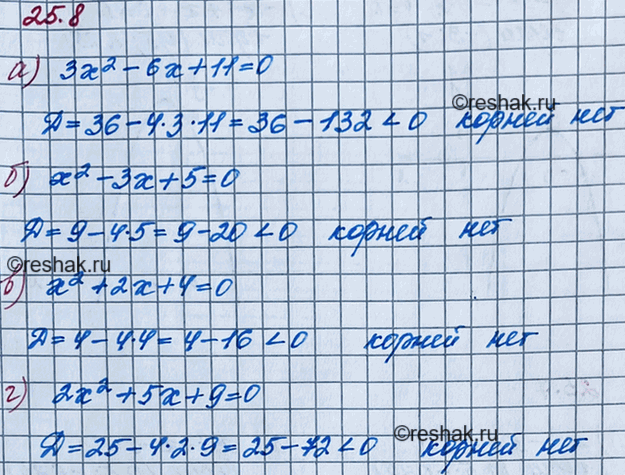 25.8
а) 3x² - 6x + 11 = 0
Д = 36 - 4·3·11 = 36 - 132 < 0 корней нет
©reshak.ru
б) x² - 3x + 5 = 0
Д = 9 - 4·5 = 9 - 20 < 0 корней нет
©reshak.ru
в) x² + 2x + 4 = 0
Д = 4 - 4·4 = 4 - 16 < 0 корней нет
г) 2x² + 5x + 9 = 0
©reshak.ru
Д = 25 - 4·2·9 = 25 - 72 < 0 корней нет